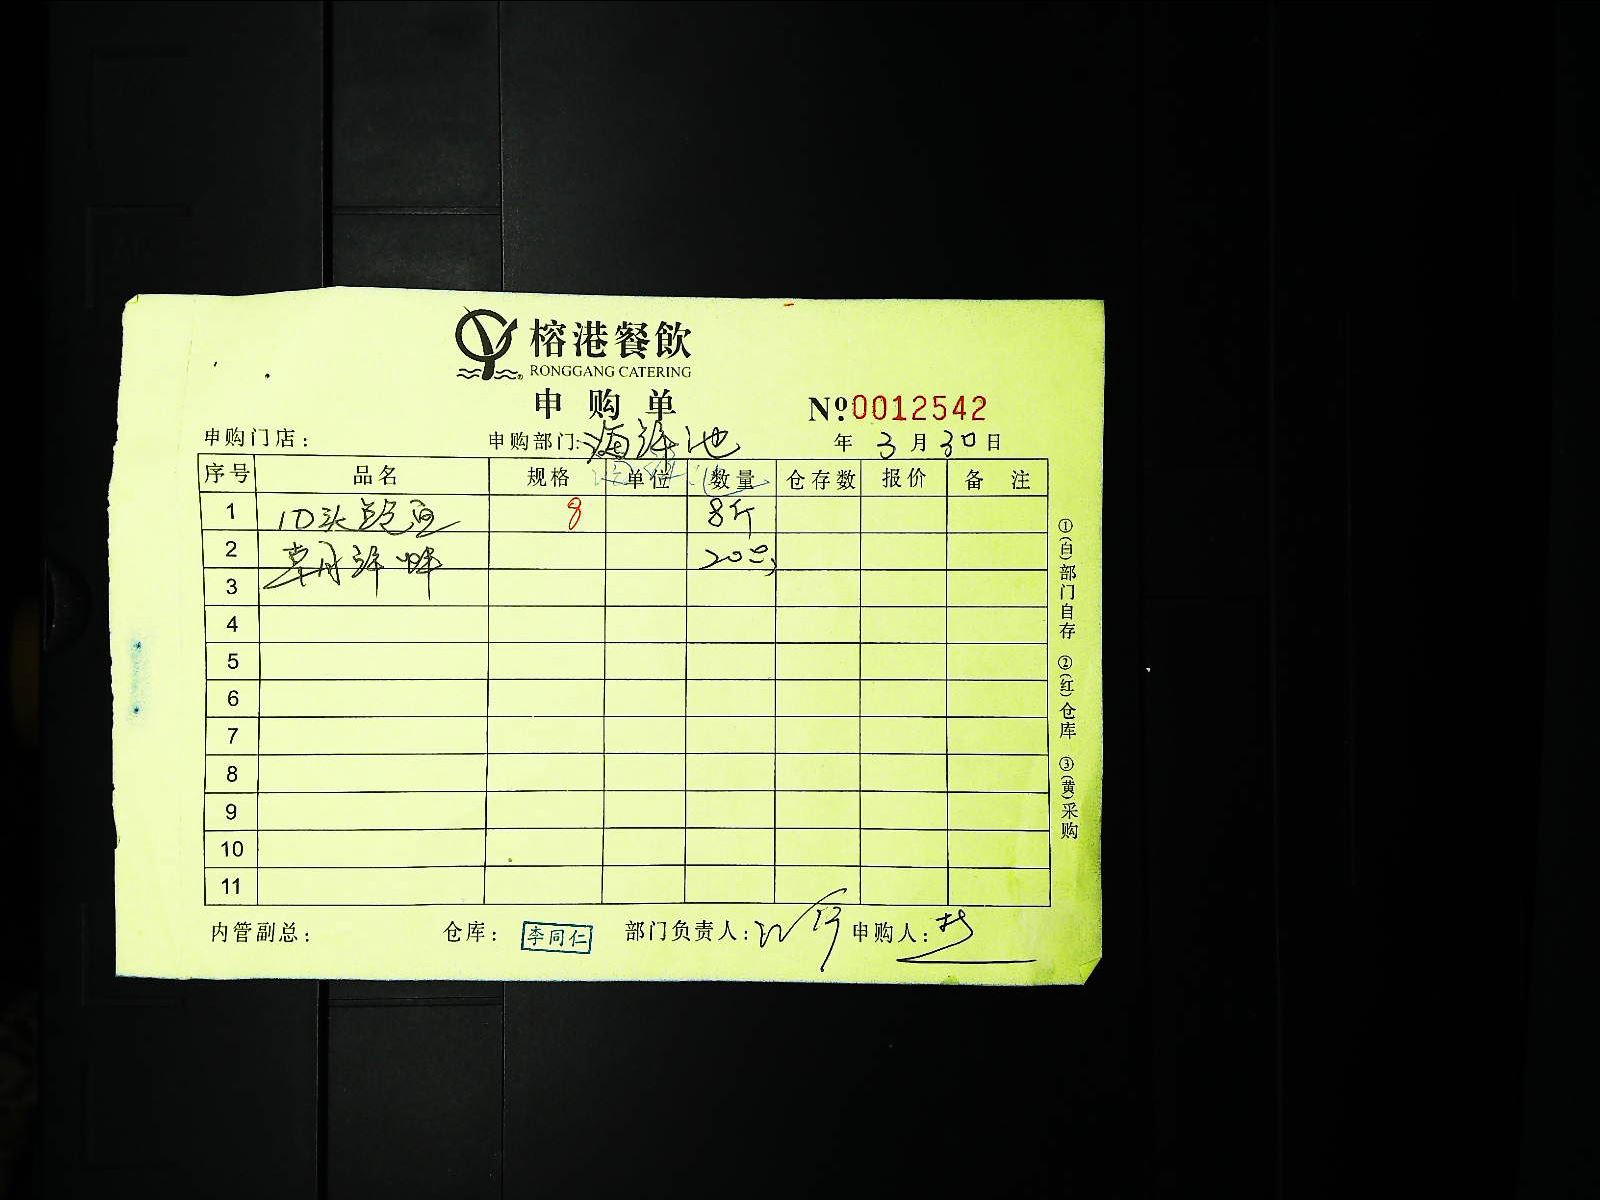 榕港餐飲
RONGGANG CATERING
申购单
Nº0012542
申购门店： 申购部门：海鲜池 年 3 月 30 日
序号 品名 规格 单位 数量 仓存数 报价 备注
1 10头鲍鱼 8 8斤
2 20
3
4
5
6
7
8
9
10
11
①(白)部门自存 ②(红)仓库 ③(黄)采购
内管副总： 仓库： 李同仁 部门负责人： 申购人：